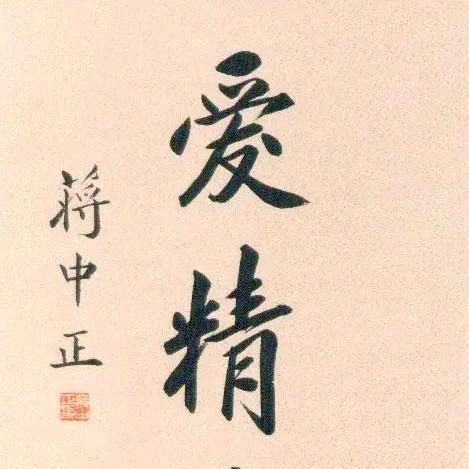 爱精
蒋中正